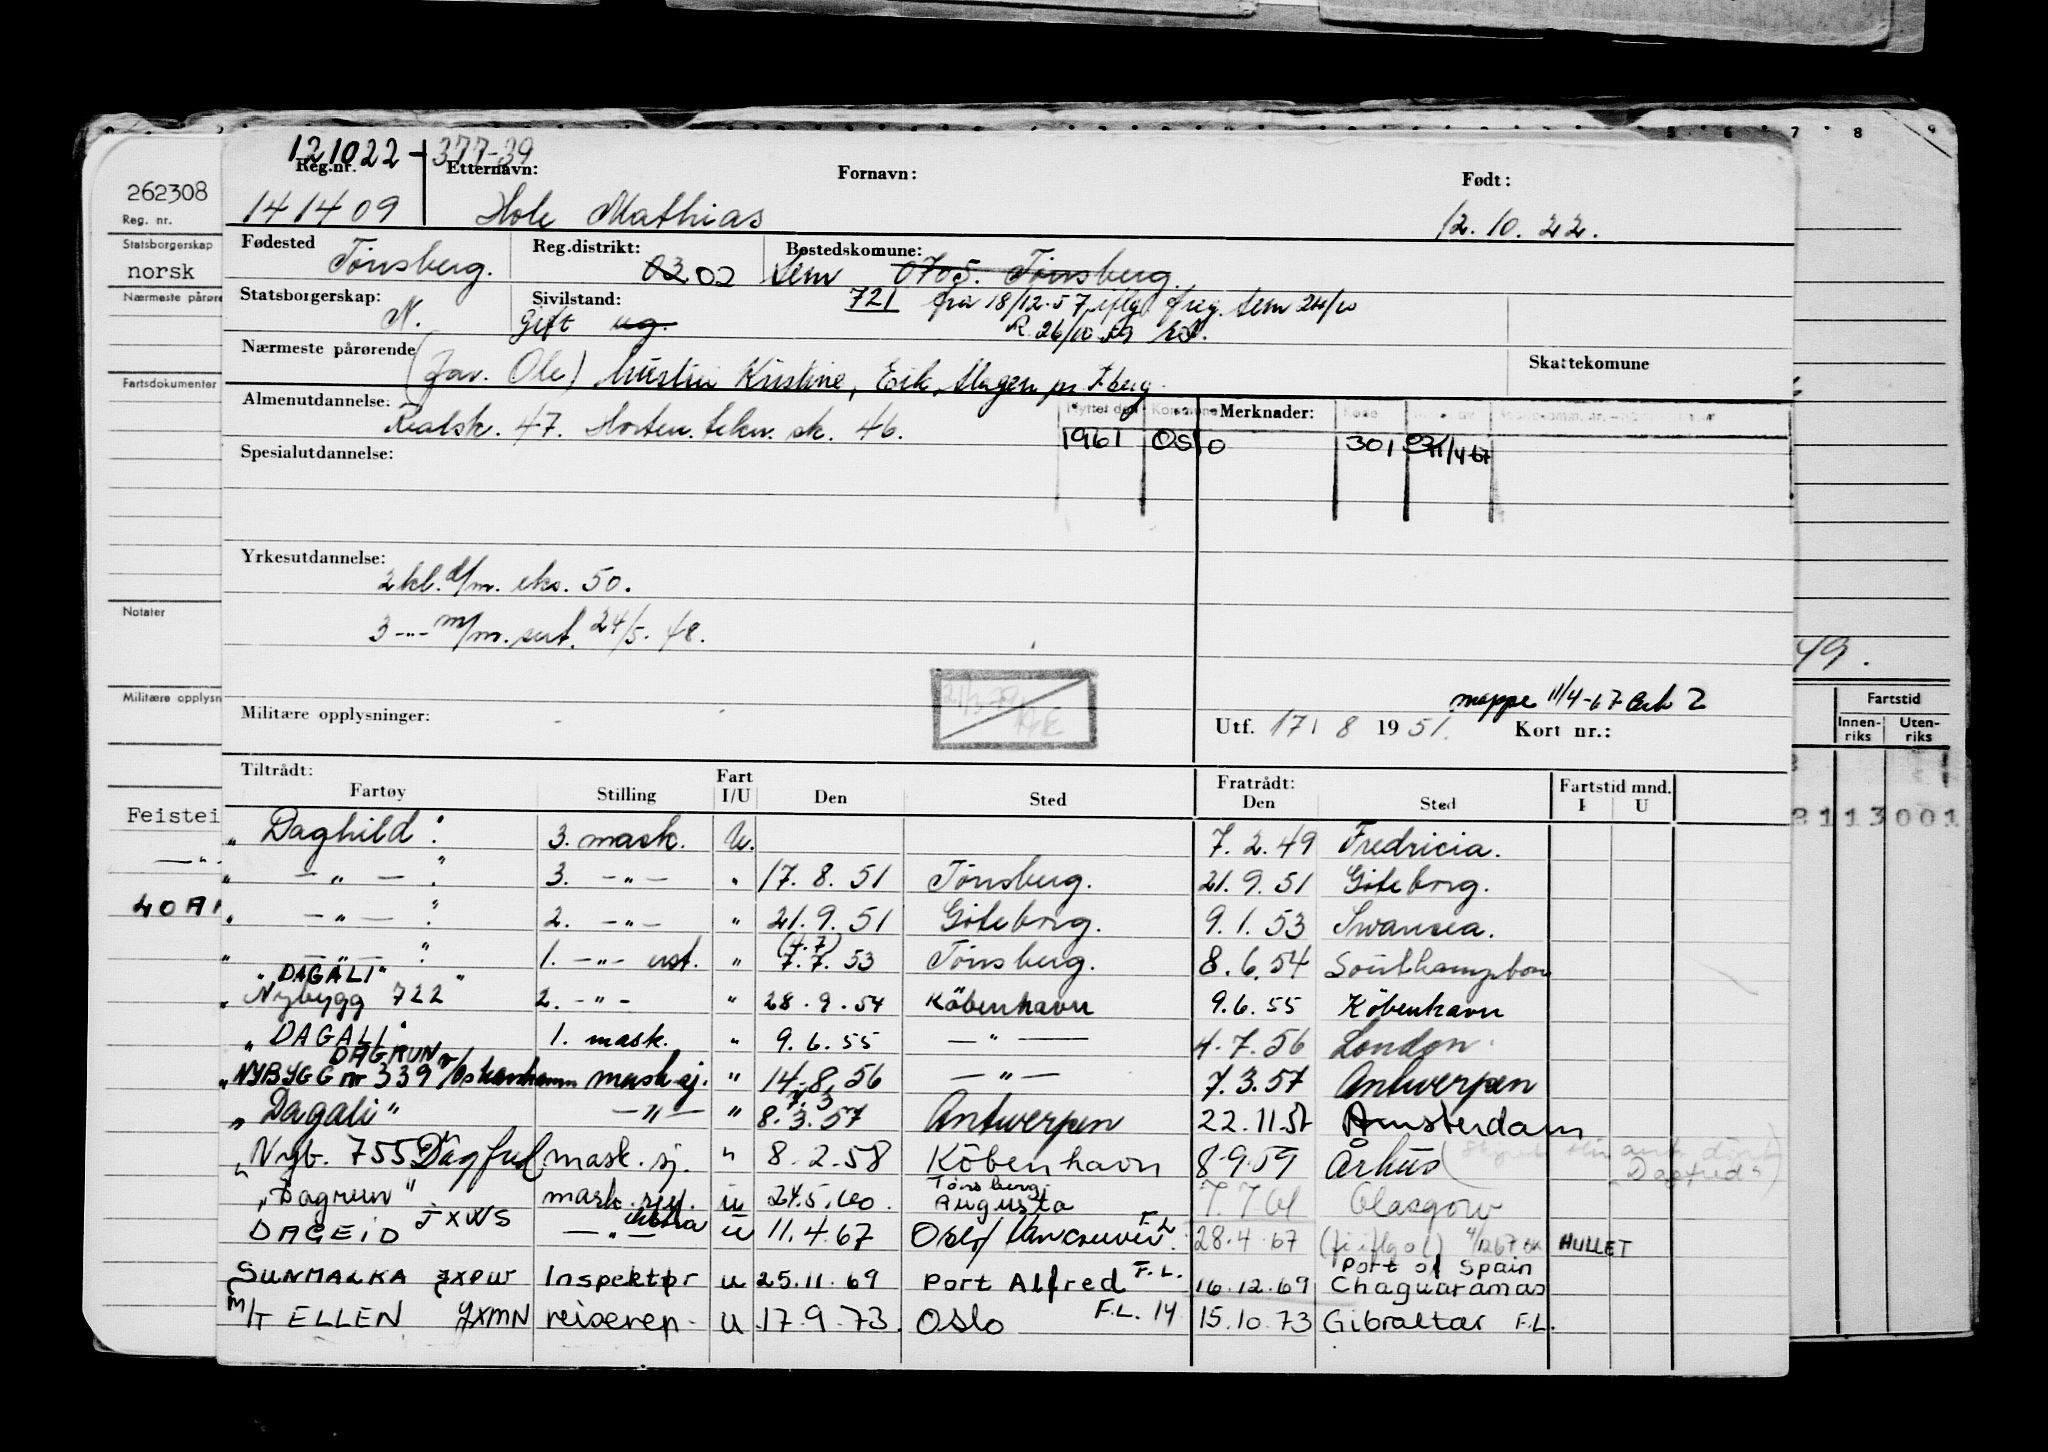 5 6 7 8 9
121022-377-39
Reg.nr. Etternavn: Fornavn: Født:
262308
Reg. nr.
141409 Hole Mathias 12.10.22.
Statsborgerskap
norsk
Fødested Tønsberg. Reg.distrikt: 03 02 Bostedskomune: Sem 0705. Tønsberg.
Nærmeste pårøre
Statsborgerskap: N. Sivilstand: Gift ug. 721 fra 18/12-57 iflg. freg. Sem 24/10
R. 26/10 59
Nærmeste pårørende (far. Ole) hustru Kristine, Eik, Slagen pr. T.berg. Skattekomune
Fartsdokumenter
Almenutdannelse: Realsk. 47. Horten tekn. sk. 46. Flyttet den Komm Merknader:
1961 Oslo 301 11/4-67
Spesialutdannelse:
Yrkesutdannelse:
2 kl. d/m. eks. 50.
Notater
3 -"- m/m. sert. 24/5. 48.
49.
Militære opplysn
Militære opplysninger:
mappe 11/4-67 Ark 2
Utf. 17/ 8 1951. Kort nr.:
Fartstid
Innen-riks Uten-riks
Tiltrådt: Fratrådt:
Fartøy Stilling Fart I/U Den Sted Den Sted Fartstid mnd. I U
Feistei
2113001
"Daghild". 3. mask. U. 7.2.49 Fredricia.
" -"- " 3. -"- " 17.8.51 Tønsberg. 21.9.51 Göteborg.
40A
" -"- " 2. -"- " 21.9.51 Göteborg. 9.1.53 Swansea.
" -"- " 1. -"- ast. " (4.7) 7.7.53 Tønsberg. 8.6.54 Southampton
"DAGALI"
"Nybygg 722" 2. -"- " 28.9.54 Köbenhavn 9.6.55 Köbenhavn
"DAGALI" 1. mask. " 9.6.55 -"- 4.7.56 London.
DAGRUN
"NYBYGG nr 339 v/Oskarshamn mask sj. " 14.8.56 -"- 7.3.57 Antwerpen
"Dagali" -"- " 7.3 8.3.57 Antwerpen 22.11.57 Amsterdam
"Nyb. 755 Dagfred mask. sj. " 8.2.58 Köbenhavn 8.9.59 Århus
"Dagfred")
"Dagrun" mask. sj. u 24.5.60. Tønsberg Augusta 7.7.61 Glasgow
DAGEID JXWS -"- ekstra u 11.4.67 Oslo/Vancouver F.L. 28.4.67 4/12 67 HULLET
SUNMALKA JXPW Inspektør u 25.11.69 Port Alfred F.L. 16.12.69 Port of Spain Chaguaramas
M/T ELLEN JXMN reiserep. U 17.9.73. Oslo F.L. 14 15.10.73 Gibraltar F.L.